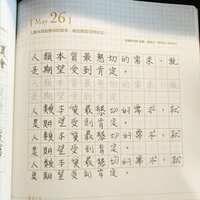 May 26
人類本質最懇切的需求，就
是期望受到肯定。
人類本質最懇切的需求，就
是期望受到肯定。
人類本質最懇切的需求，就
是期望受到肯定。
人類本質最懇切的需求，就
是期望受到肯定。